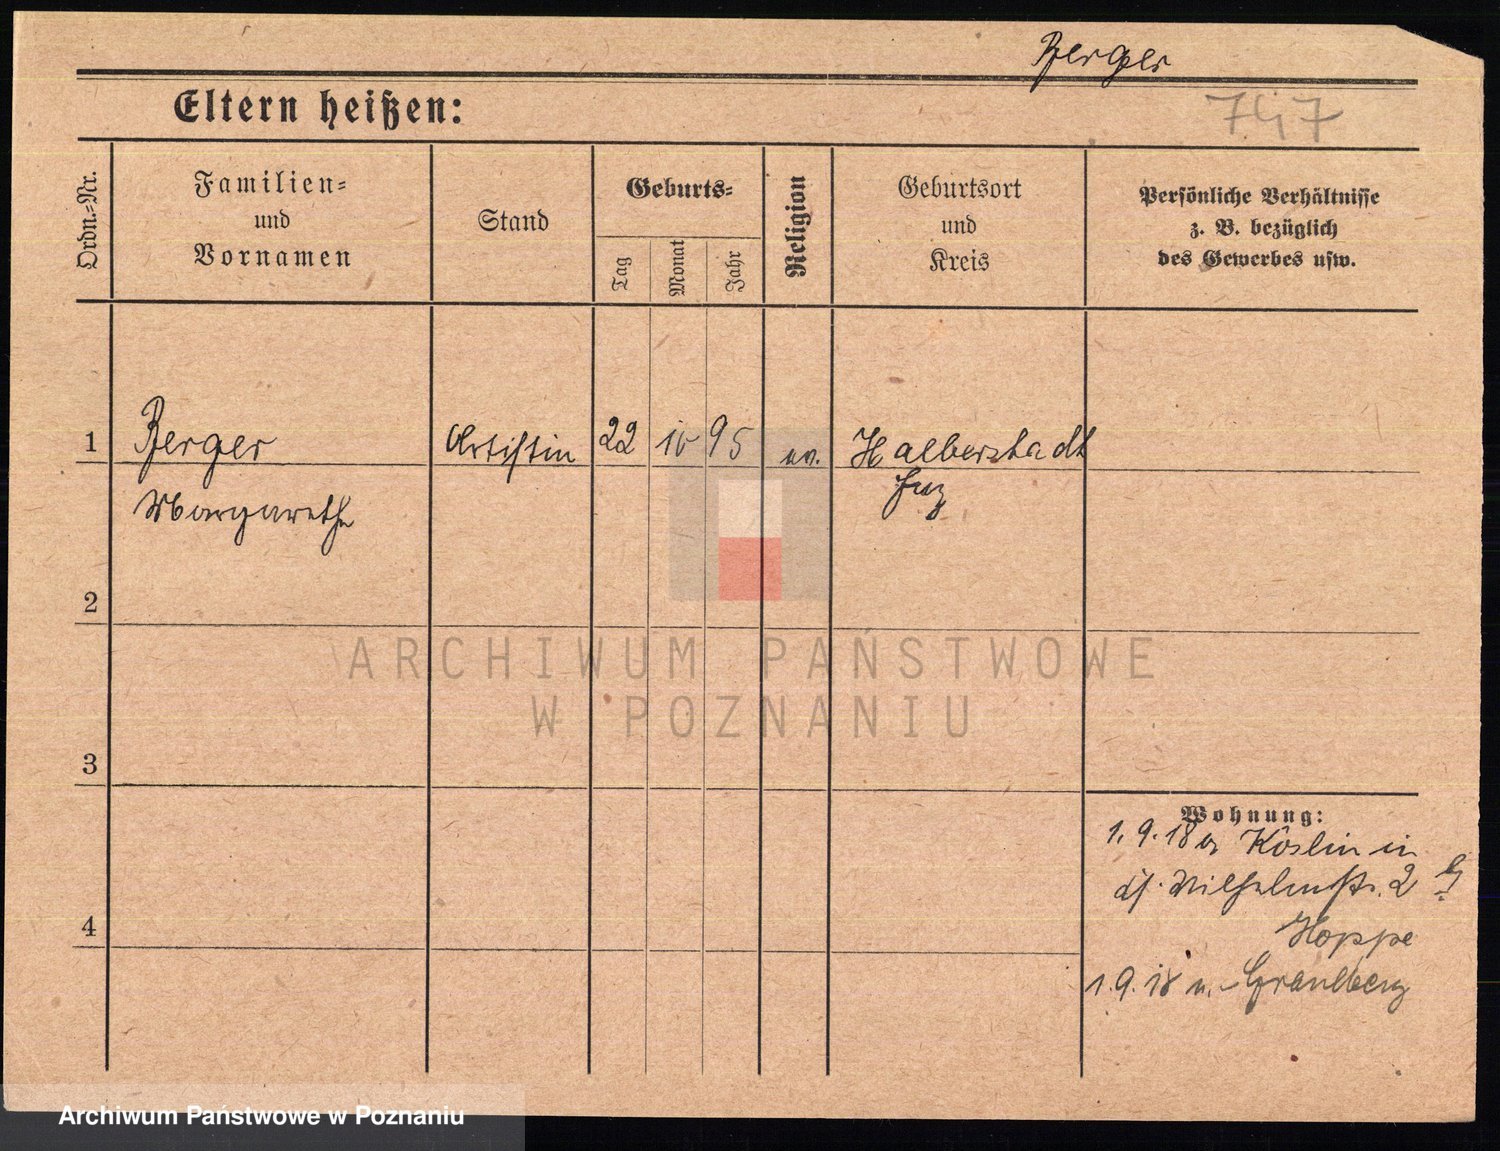 Berger
Eltern heißen:
747
Ordn.-Nr.
Familien-
und
Vornamen
Stand
Geburts-
Tag
Monat
Jahr
Religion
Geburtsort
und
Kreis
Persönliche Verhältnisse
z. B. bezüglich
des Gewerbes usw.
1 Berger Artistin 22 10 95 ev. Halberstadt
Margarethe
2
3
4
Wohnung:
1.9.18 Köslin in
Wilhelmstr. 2
Hoppe
1.9.18 n.
ARCHIWUM PAŃSTWOWE
W POZNANIU
Archiwum Państwowe w Poznaniu